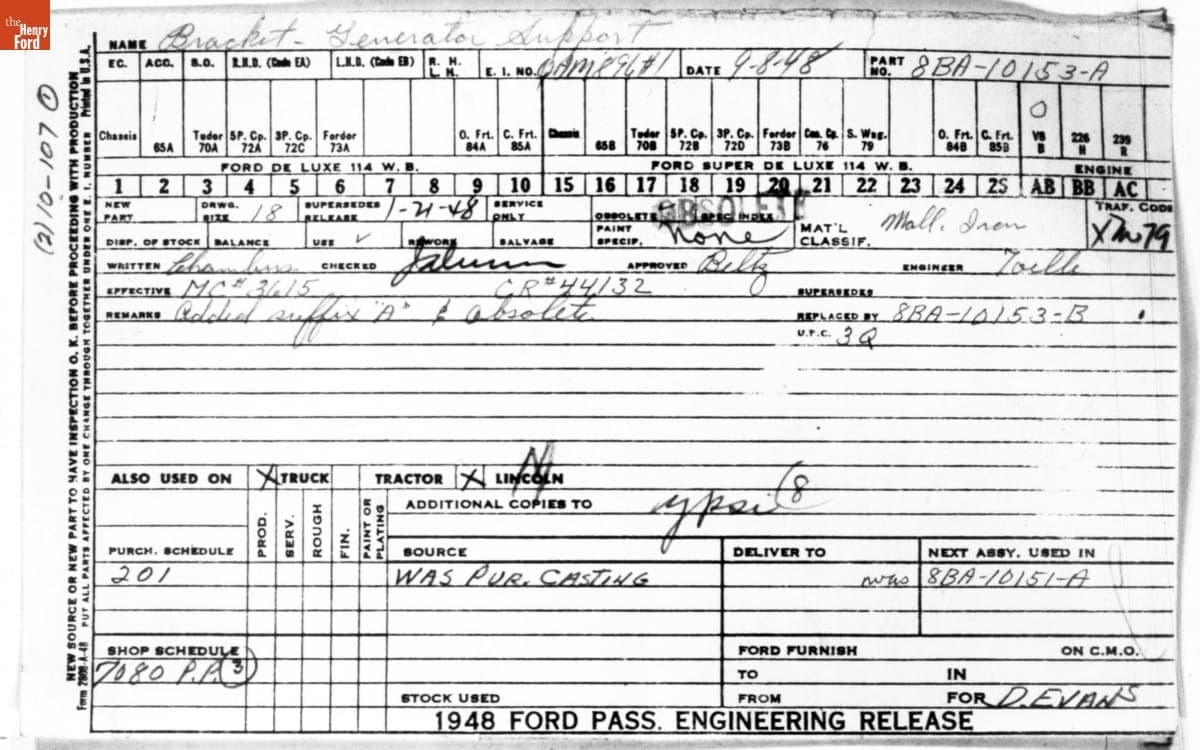 the Henry Ford
NAME Bracket - Generator Support
EC. ACC. S.O. R.H.D. (Code EA) L.H.D. (Code EB) R. H. L. H. E. I. NO. OAM896#1 DATE 9-8-48 PART NO. 8BA-10153-A
Chassis 65A Tudor 70A 5P. Cp. 72A 3P. Cp. 72C Fordor 73A O. Frt. 84A C. Frt. 85A Chassis 65B Tudor 70B 5P. Cp. 72B 3P. Cp. 72D Fordor 73B Con. Cp. 76 S. Wag. 79 O. Frt. 84B C. Frt. 85B V8 B 226 H 239 R
FORD DE LUXE 114 W. B. FORD SUPER DE LUXE 114 W. B. ENGINE
1 2 3 4 5 6 7 8 9 10 15 16 17 18 19 20 21 22 23 24 25 AB BB AC
NEW PART DRWG. SIZE 18 SUPERSEDES RELEASE 1-21-48 SERVICE ONLY OBSOLETE SPEC. INDEX TRAF. CODE
OBSOLETE
DISP. OF STOCK BALANCE USE ✓ REWORK SALVAGE PAINT SPECIF. none MAT'L CLASSIF. Mall. Iron
WRITTEN Chambers CHECKED APPROVED Beltz ENGINEER Toille
EFFECTIVE MC#3615 CR#44132 SUPERSEDES
REMARKS Added suffix "A" & Obsolete REPLACED BY 8BA-10153-B
U.P.C. 3Q
ALSO USED ON X TRUCK TRACTOR X LINCOLN
ADDITIONAL COPIES TO ypsi (8
PROD. SERV. ROUGH FIN. PAINT OR PLATING
PURCH. SCHEDULE SOURCE DELIVER TO NEXT ASSY. USED IN
201 WAS PUR. CASTING was 8BA-10151-A
SHOP SCHEDULE FORD FURNISH ON C.M.O.
7080 P.P. 3 TO IN
STOCK USED FROM FOR D. EVANS
1948 FORD PASS. ENGINEERING RELEASE
(2) 10-107 1
NEW SOURCE OR NEW PART TO HAVE INSPECTION O. K. BEFORE PROCEEDING WITH PRODUCTION
Form 280B-A-48 PUT ALL PARTS AFFECTED BY ONE CHANGE THROUGH TOGETHER UNDER ONE E. I. NUMBER Printed in U.S.A.